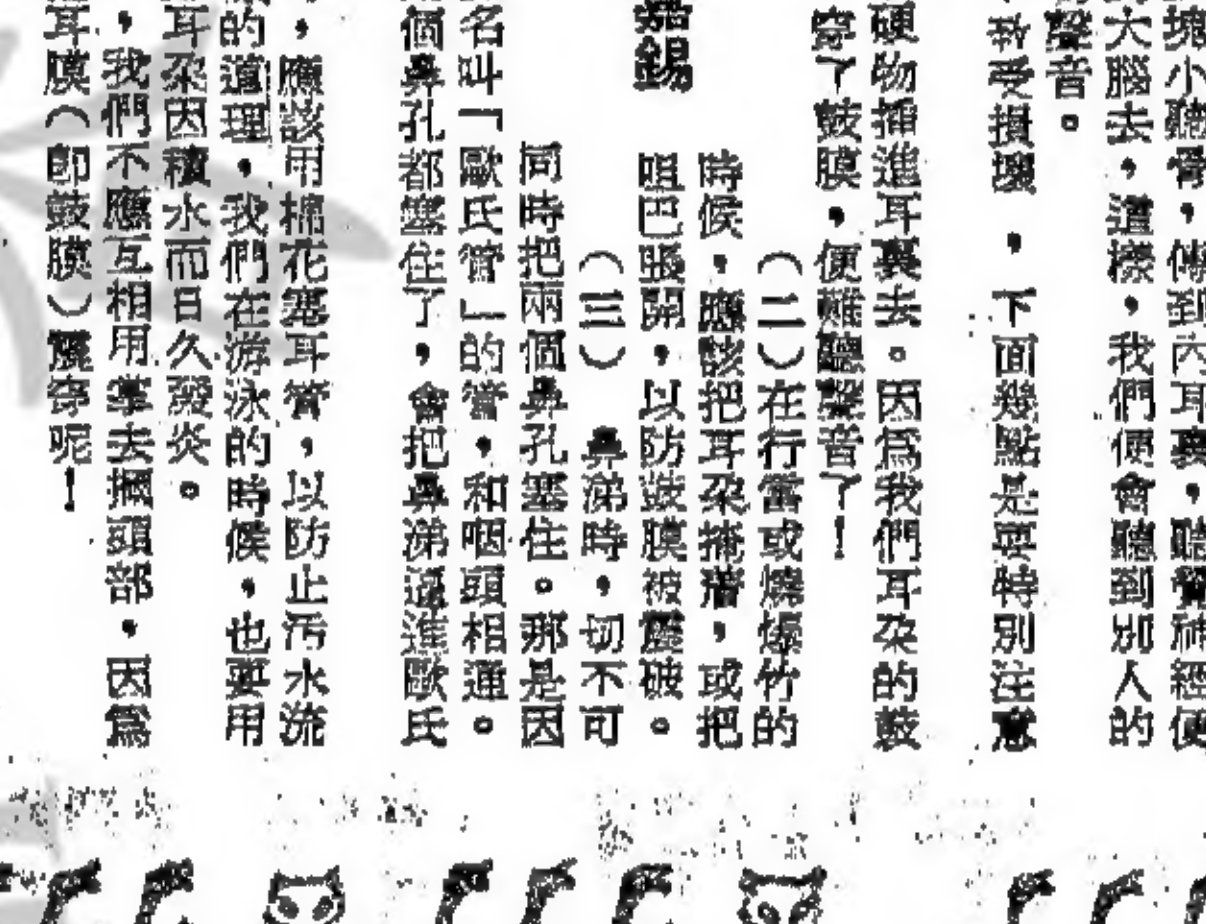 塊小聽骨，傳到內耳裏，聽覺神經便
大腦去，這樣，我們便會聽到別人的
聲音。
受損壞，下面幾點是要特別注意
硬物插進耳裏去。因爲我們耳朶的鼓
穿了鼓膜，便難聽聲音了！
（二）在行雷或燒爆竹的
時候，應該把耳朶掩着，或把
咀巴張開，以防鼓膜被震破。
（三）鼻涕時，切不可
同時把兩個鼻孔塞住。那是因
名叫「歐氏管」的管，和咽頭相連。
個鼻孔都塞住了，會把鼻涕逼進歐氏
嘉錫
，應該用棉花塞耳管，以防止污水流
的道理，我們在游泳的時候，也要用
耳朶因積水而日久發炎。
，我們不應互相用掌去摑頭部，因爲
耳膜（卽鼓膜）震穿呢！